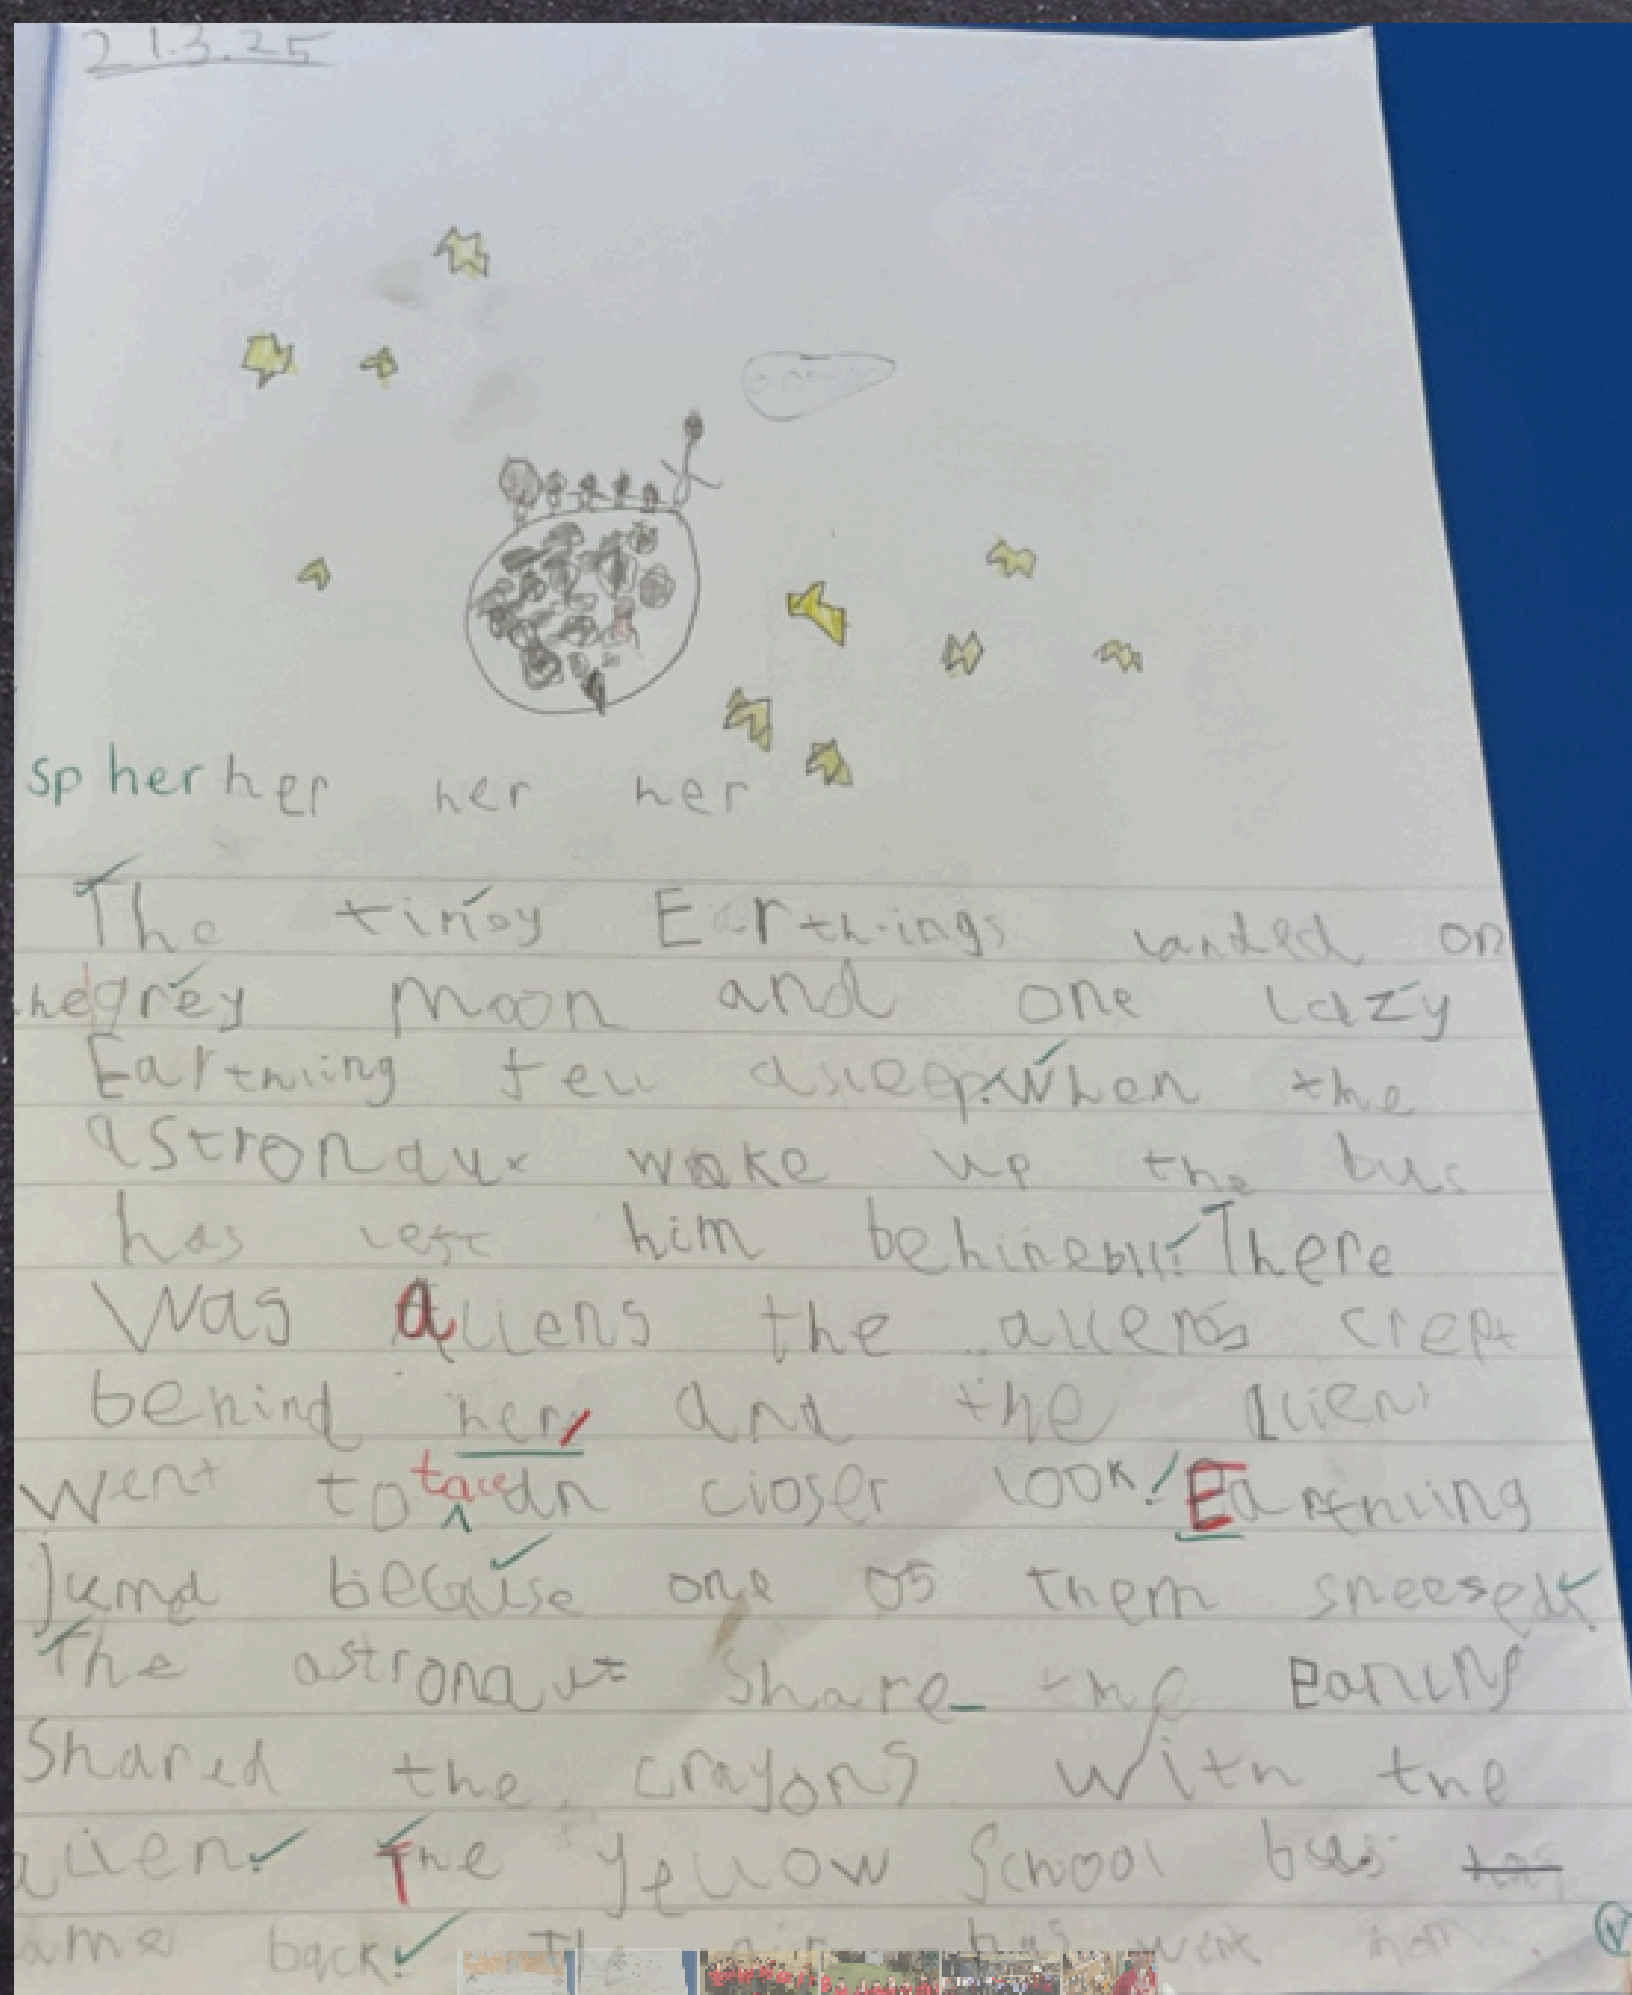 21.3.25
sp her her her her
The tinsy Earthings landed on
he grey moon and one lazy
Earthling fell asleep. When the
astronaut woke up the bus
has left him behind!! There
was aliens the aliens crept
behind her and the aliens
went to take an closer look! Earthling
jumd because one of them sneesed.
The astronaut share the
Shared the crayons with the
alien. The yellow School bus has
ame back! The bus went home.